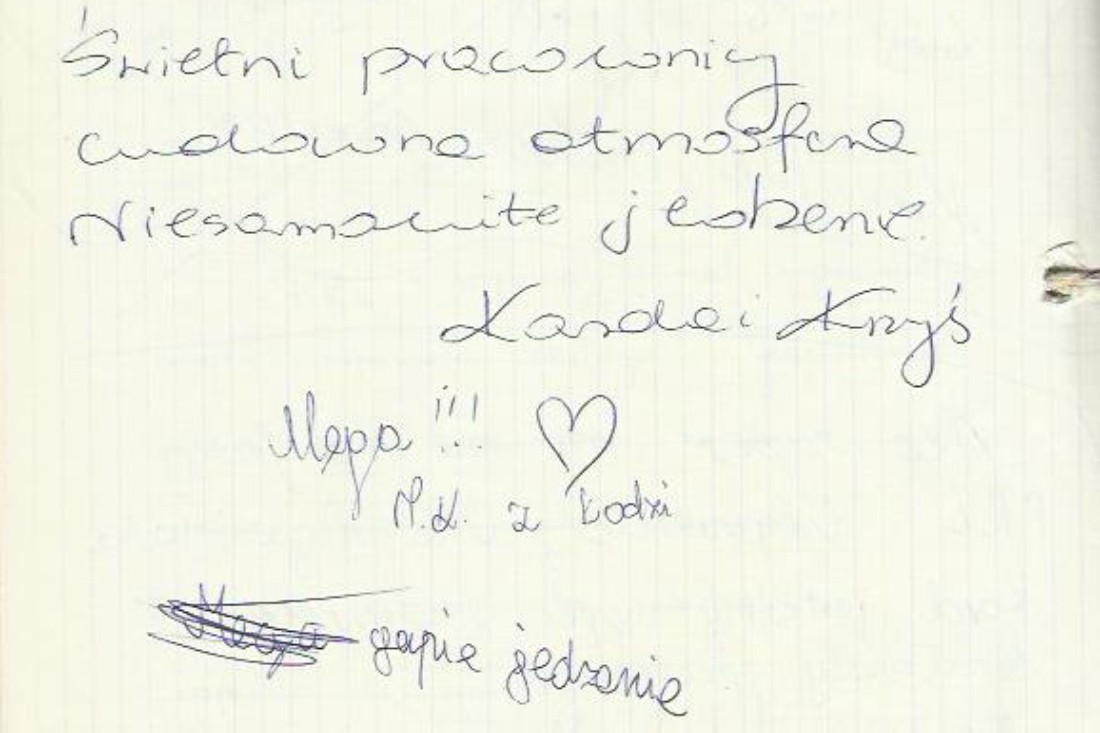 Świetni pracownicy
cudowna atmosfera
Niesamowite jedzenie.
i Krzyś
Mega !!! ♡
M.K. z Łodzi
jedzenie